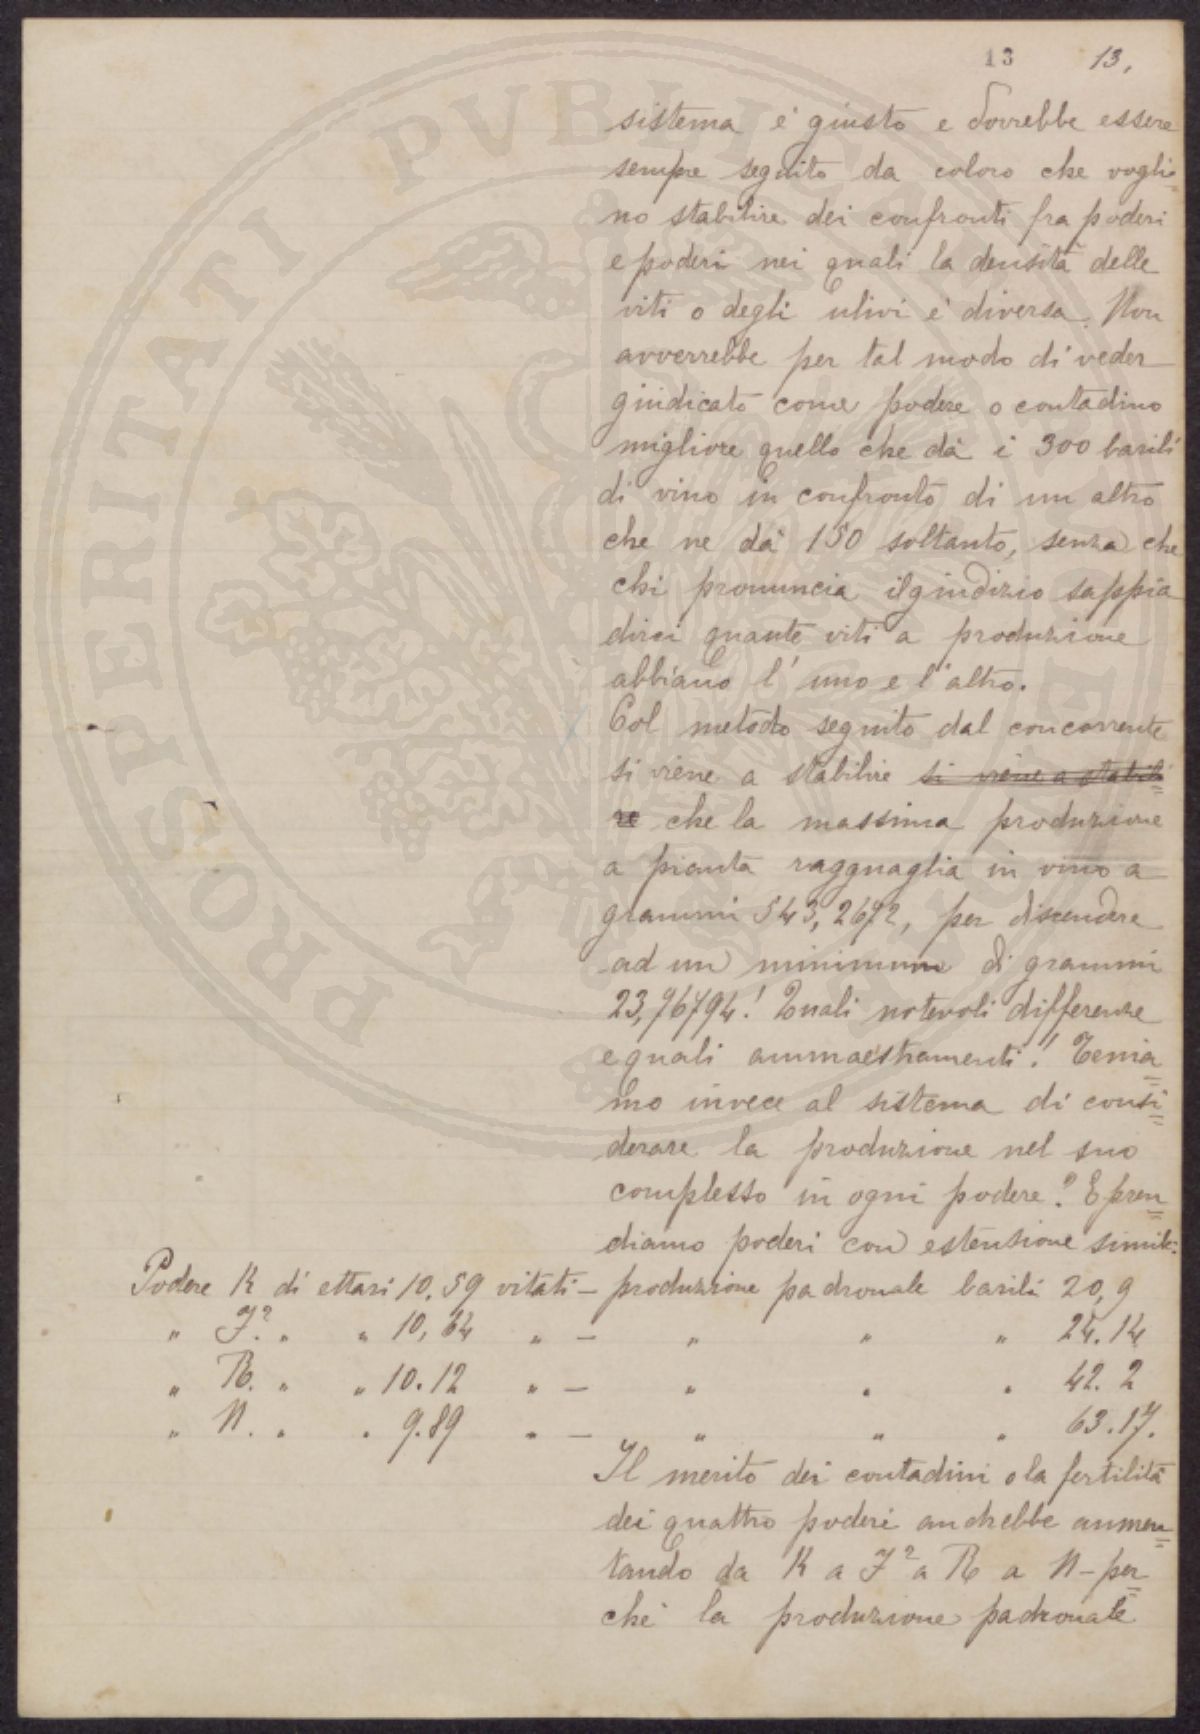 13 13.
sistema è giusto e dovrebbe essere
sempre seguito da coloro che voglio-
no stabilire dei confronti fra poderi
e poderi nei quali la densità delle
viti o degli ulivi è diversa. Non
avverrebbe per tal modo di veder
giudicato come podere o contadino
migliore quello che dà i 300 barili
di vino in confronto di un altro
che ne dà 150 soltanto, senza che
chi pronuncia il giudizio sappia
dirci quante viti a produzione
abbiano l'uno e l'altro.
Col metodo seguito dal concorrente
si viene a stabilire si viene a stabili=
re che la massima produzione
a pianta ragguaglia in vino a
grammi 543,2672, per discendere
ad un minimum di grammi
23,76794! Quali notevoli differenze
e quali ammaestramenti! Tenia=
mo invece al sistema di consi=
derare la produzione nel suo
complesso in ogni podere? E pren=
diamo poderi con estensione simile:
Podere K di ettari 10,59 vitati - produzione padronale barili 20,9
" J². " " 10,64 " - " " " 24.14
" R. " " 10.12 " - " " " 42.2
" N. " " 9.89 " - " " " 63.17.
Il merito dei contadini o la fertilità
dei quattro poderi andrebbe aumen=
tando da K a J² a R a N - per=
chè la produzione padronale
PROSPERITATI PVBLICAE